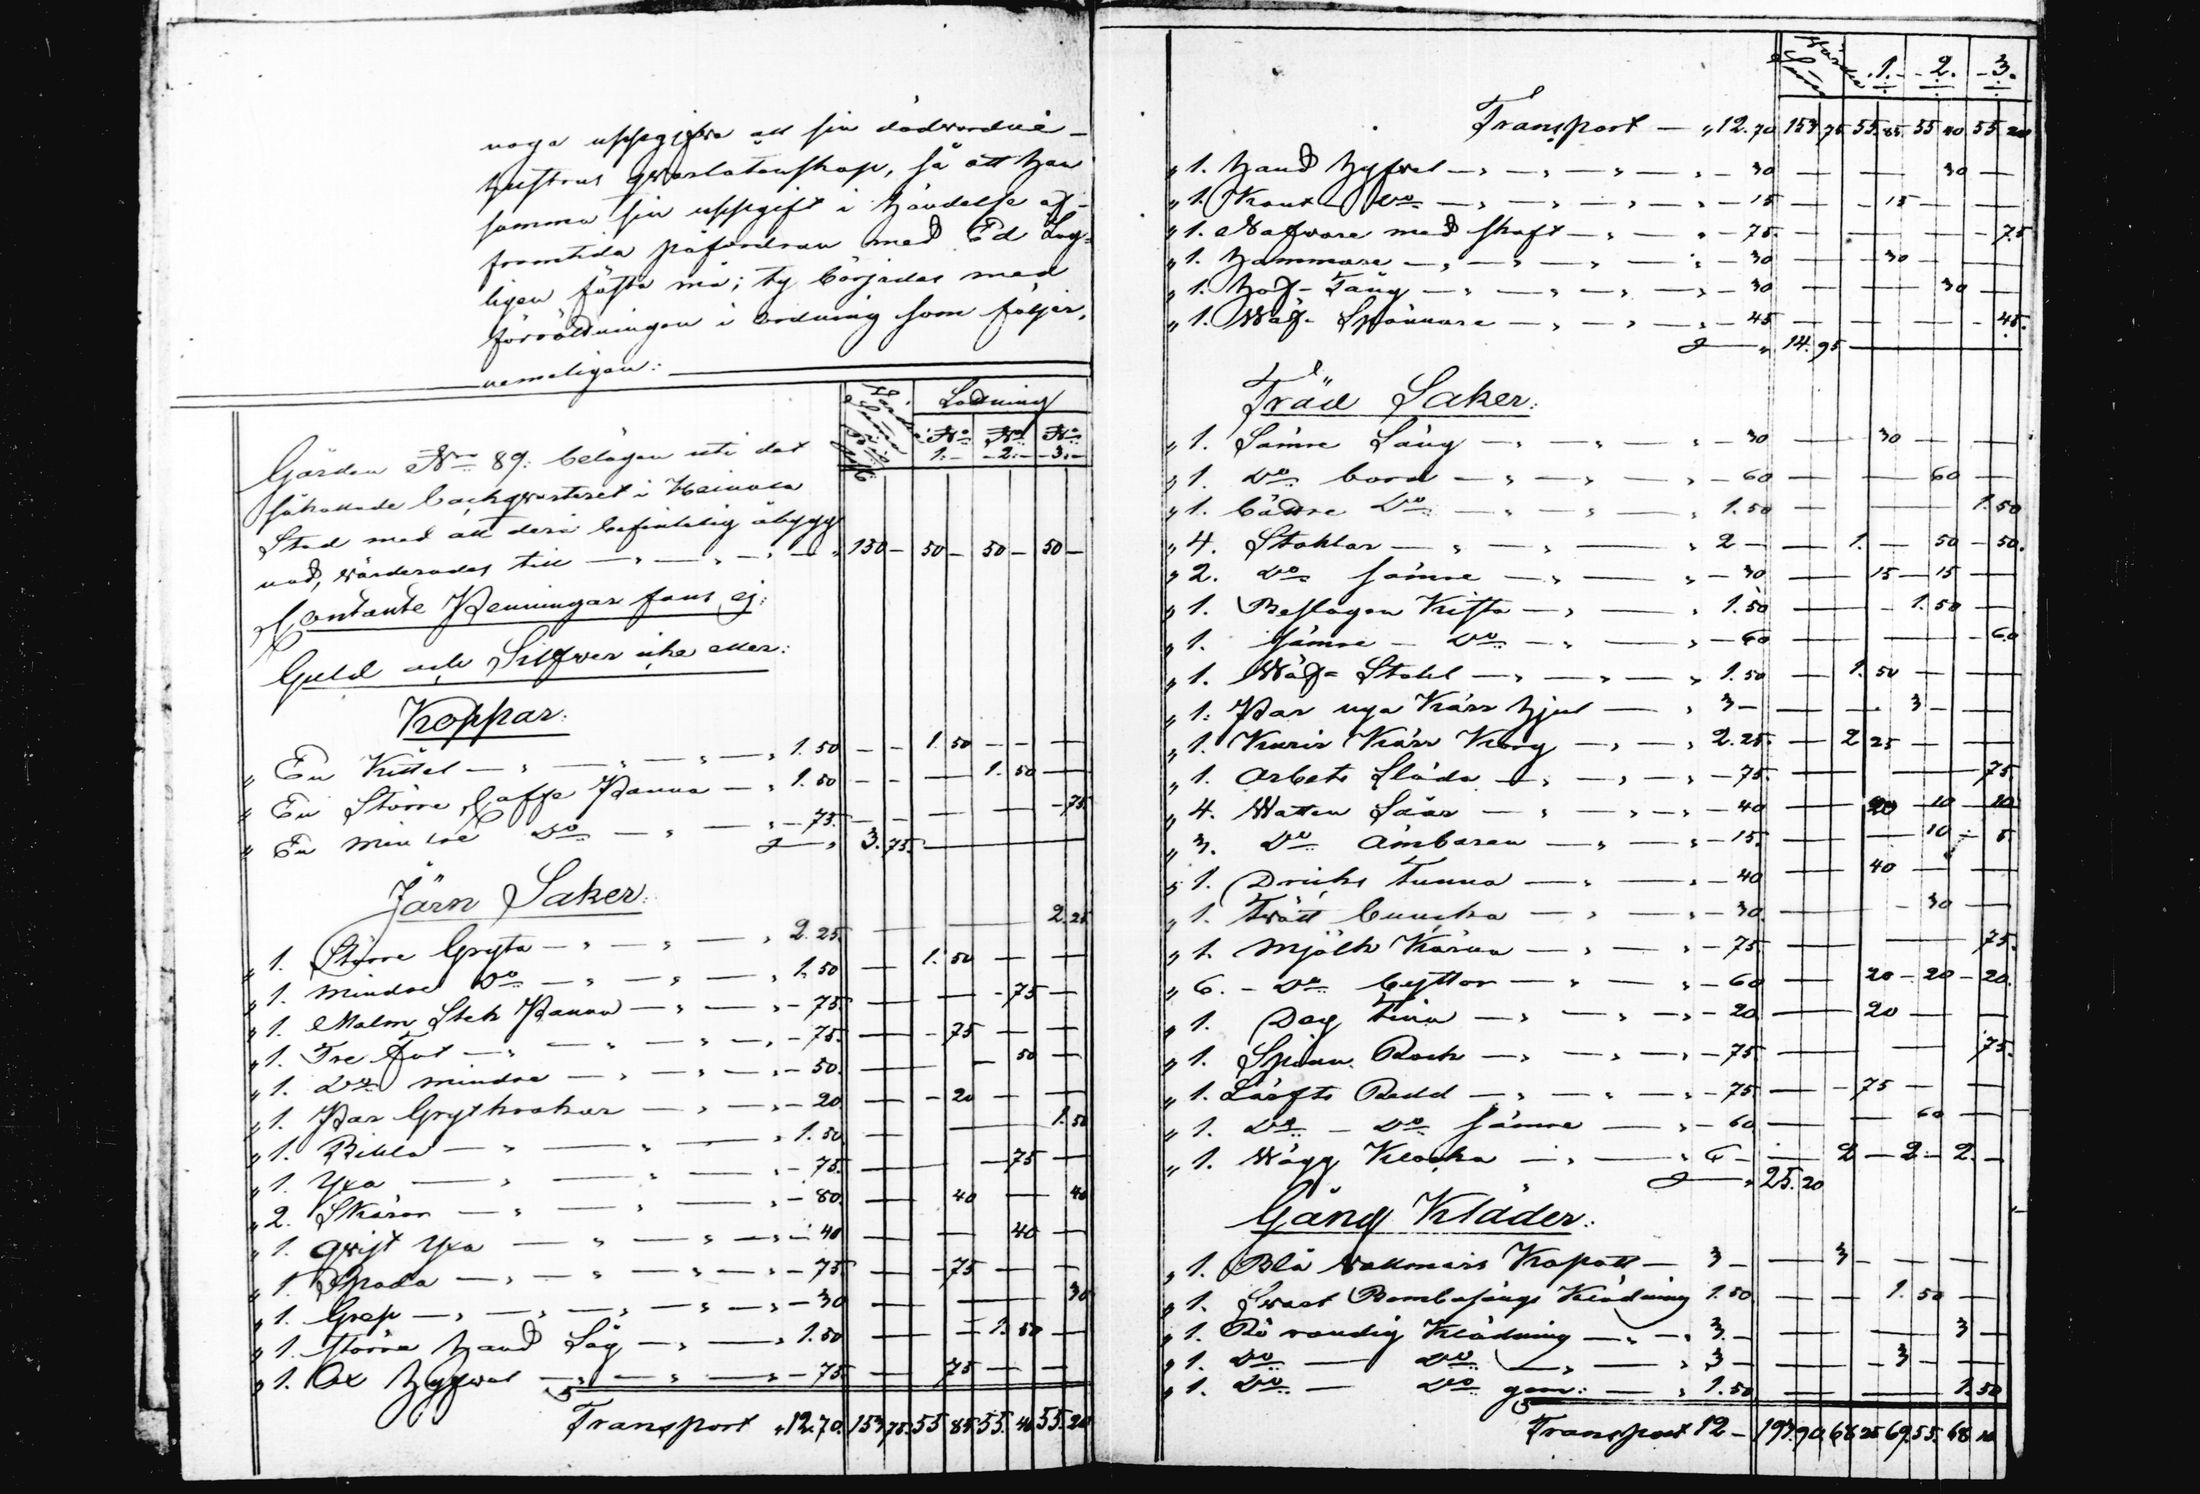 noga uppgifva all sin dödvordne
hustrus qvarlatenskap, så att han
samma sin uppgift i händelse af
framtida påfordran med Ed Lag-
ligen fästa må; ty börjades med
förrättningen i ordning som följer,
nemeligen:
Summa Lodning
No 1. No 2. No 3.
Gården No 89: belägen uti det
såkallade backqvarteret i Heinola
Stad med all derå befintelig åbygg
nad, värderades till 150 – 50 – 50 – 50 –
Contante Penningar fans ej:
Guld och Silfver icke eller:
Koppar:
" En Kittel 1.50 1.50
" En Större Caffe Panna 1.50 1.50
" En mindre Do 75. 75
3.75.
Järn Saker:
" 1. Större Gryta 2.25. 2.25
" 1. mindre Do 1.50 1.50
" 1. Malm Stek Panna 75 75
" 1. Tre Fot 75. 75
" 1. Do mindre 50. 50
" 1. Par Grytkrokar 20 20
" 1. Bihla 1.50 1.50
" 1. Yxa 75. 75
" 2. Skäror 80 40 40
" 1. qvist Yxa 40 40
" 1. Spada 75 75
" 1. Grep 30 30
" 1. större hand Såg 1.50 1.50
" 1. Ox hyfvel 75. 75
Transport "12.70. 153 75. 55 85. 55. 40 55. 20
Summa 1. 2. 3.
Transport "12.70 153 75 55.85. 55 40 55 20
" 1. hand hyfvel 30 30
" 1. Kant Do 15 15
" 1. Nafvare med skaft 75. 75
" 1. hammare 30 30
" 1. hof-Tång 30 30
" 1. Wäf-Spännare 45 45.
" 14. 95
Träd Saker:
" 1. Sämre Säng 30 30
" 1. Do bord 60 60
" 1. bättre Do 1.50 1.50
" 4. Stohlar 2 1. 50 50.
" 2. Do sämre 30 15 15
" 1. Beslagen Kista 1.50 1.50
" 1. sämre Do 60 60
" 1. Wäf-Stohl 1.50 1.50
" 1. Par nya Kärr hjul 3 3
" 1. Kurir Kärr Korg 2.25. 2 25
" 1. Arbets Släda 75. 75.
" 4. Watten Såar 40 20 10 10
" 3. Do Ämbaren 15. 10 5.
" 1. Dricks tunna 40 40
" 1. Tvätt buncka 30. 30
" 1. Mjölk Kärna 75. 75.
" 6. Do byttor 60 20 20 20.
" 1. Deg tina 20 20
" 1. Spinn Rock 75 75.
" 1. Lärfts Redd 75. 75
" 1. Do Do sämre 60. 60
" 1. Wägg Klocka 6 2 2 2
" 25.20
Gång Kläder:
" 1. Blå Vallmars Kapott 3 3
" 1. Svart Bombasängs Klädning 1.50. 1.50
" 1. Rö randig Klädning 3. 3
" 1. Do Do 3 3
" 1. Do Do gam: 1.50 1.50
Transport 12 – 193.90 68 25 69.55. 68 10